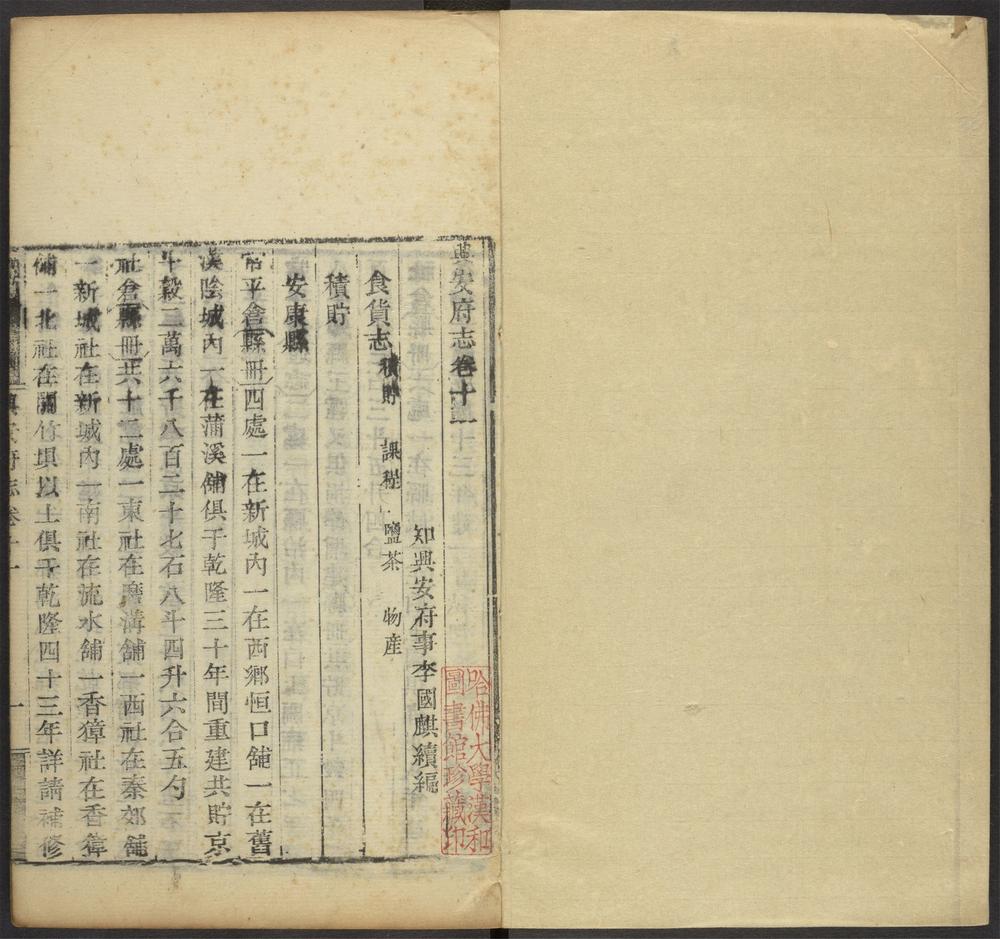 興安府志卷十一
知興安府事李國麒續編
食貨志 積貯 課程 鹽茶 物産
積貯
安康縣
常平倉縣冊四處一在新城內一在西鄉恒口舖一在舊
漢陰城內一在蒲溪舖俱于乾隆三十年間重建共貯京
斗穀二萬六千八百二十七石八斗四升六合五勺
社倉縣冊共十二處一東社在磨溝舖一西社在秦郊舖
一新城社在新城內一南社在流水舖一香獐社在香獐
舖一北社在關竹垻以上俱于乾隆四十三年詳請補修
興安府志卷十一
一
哈佛大學漢和
圖書館珍藏印